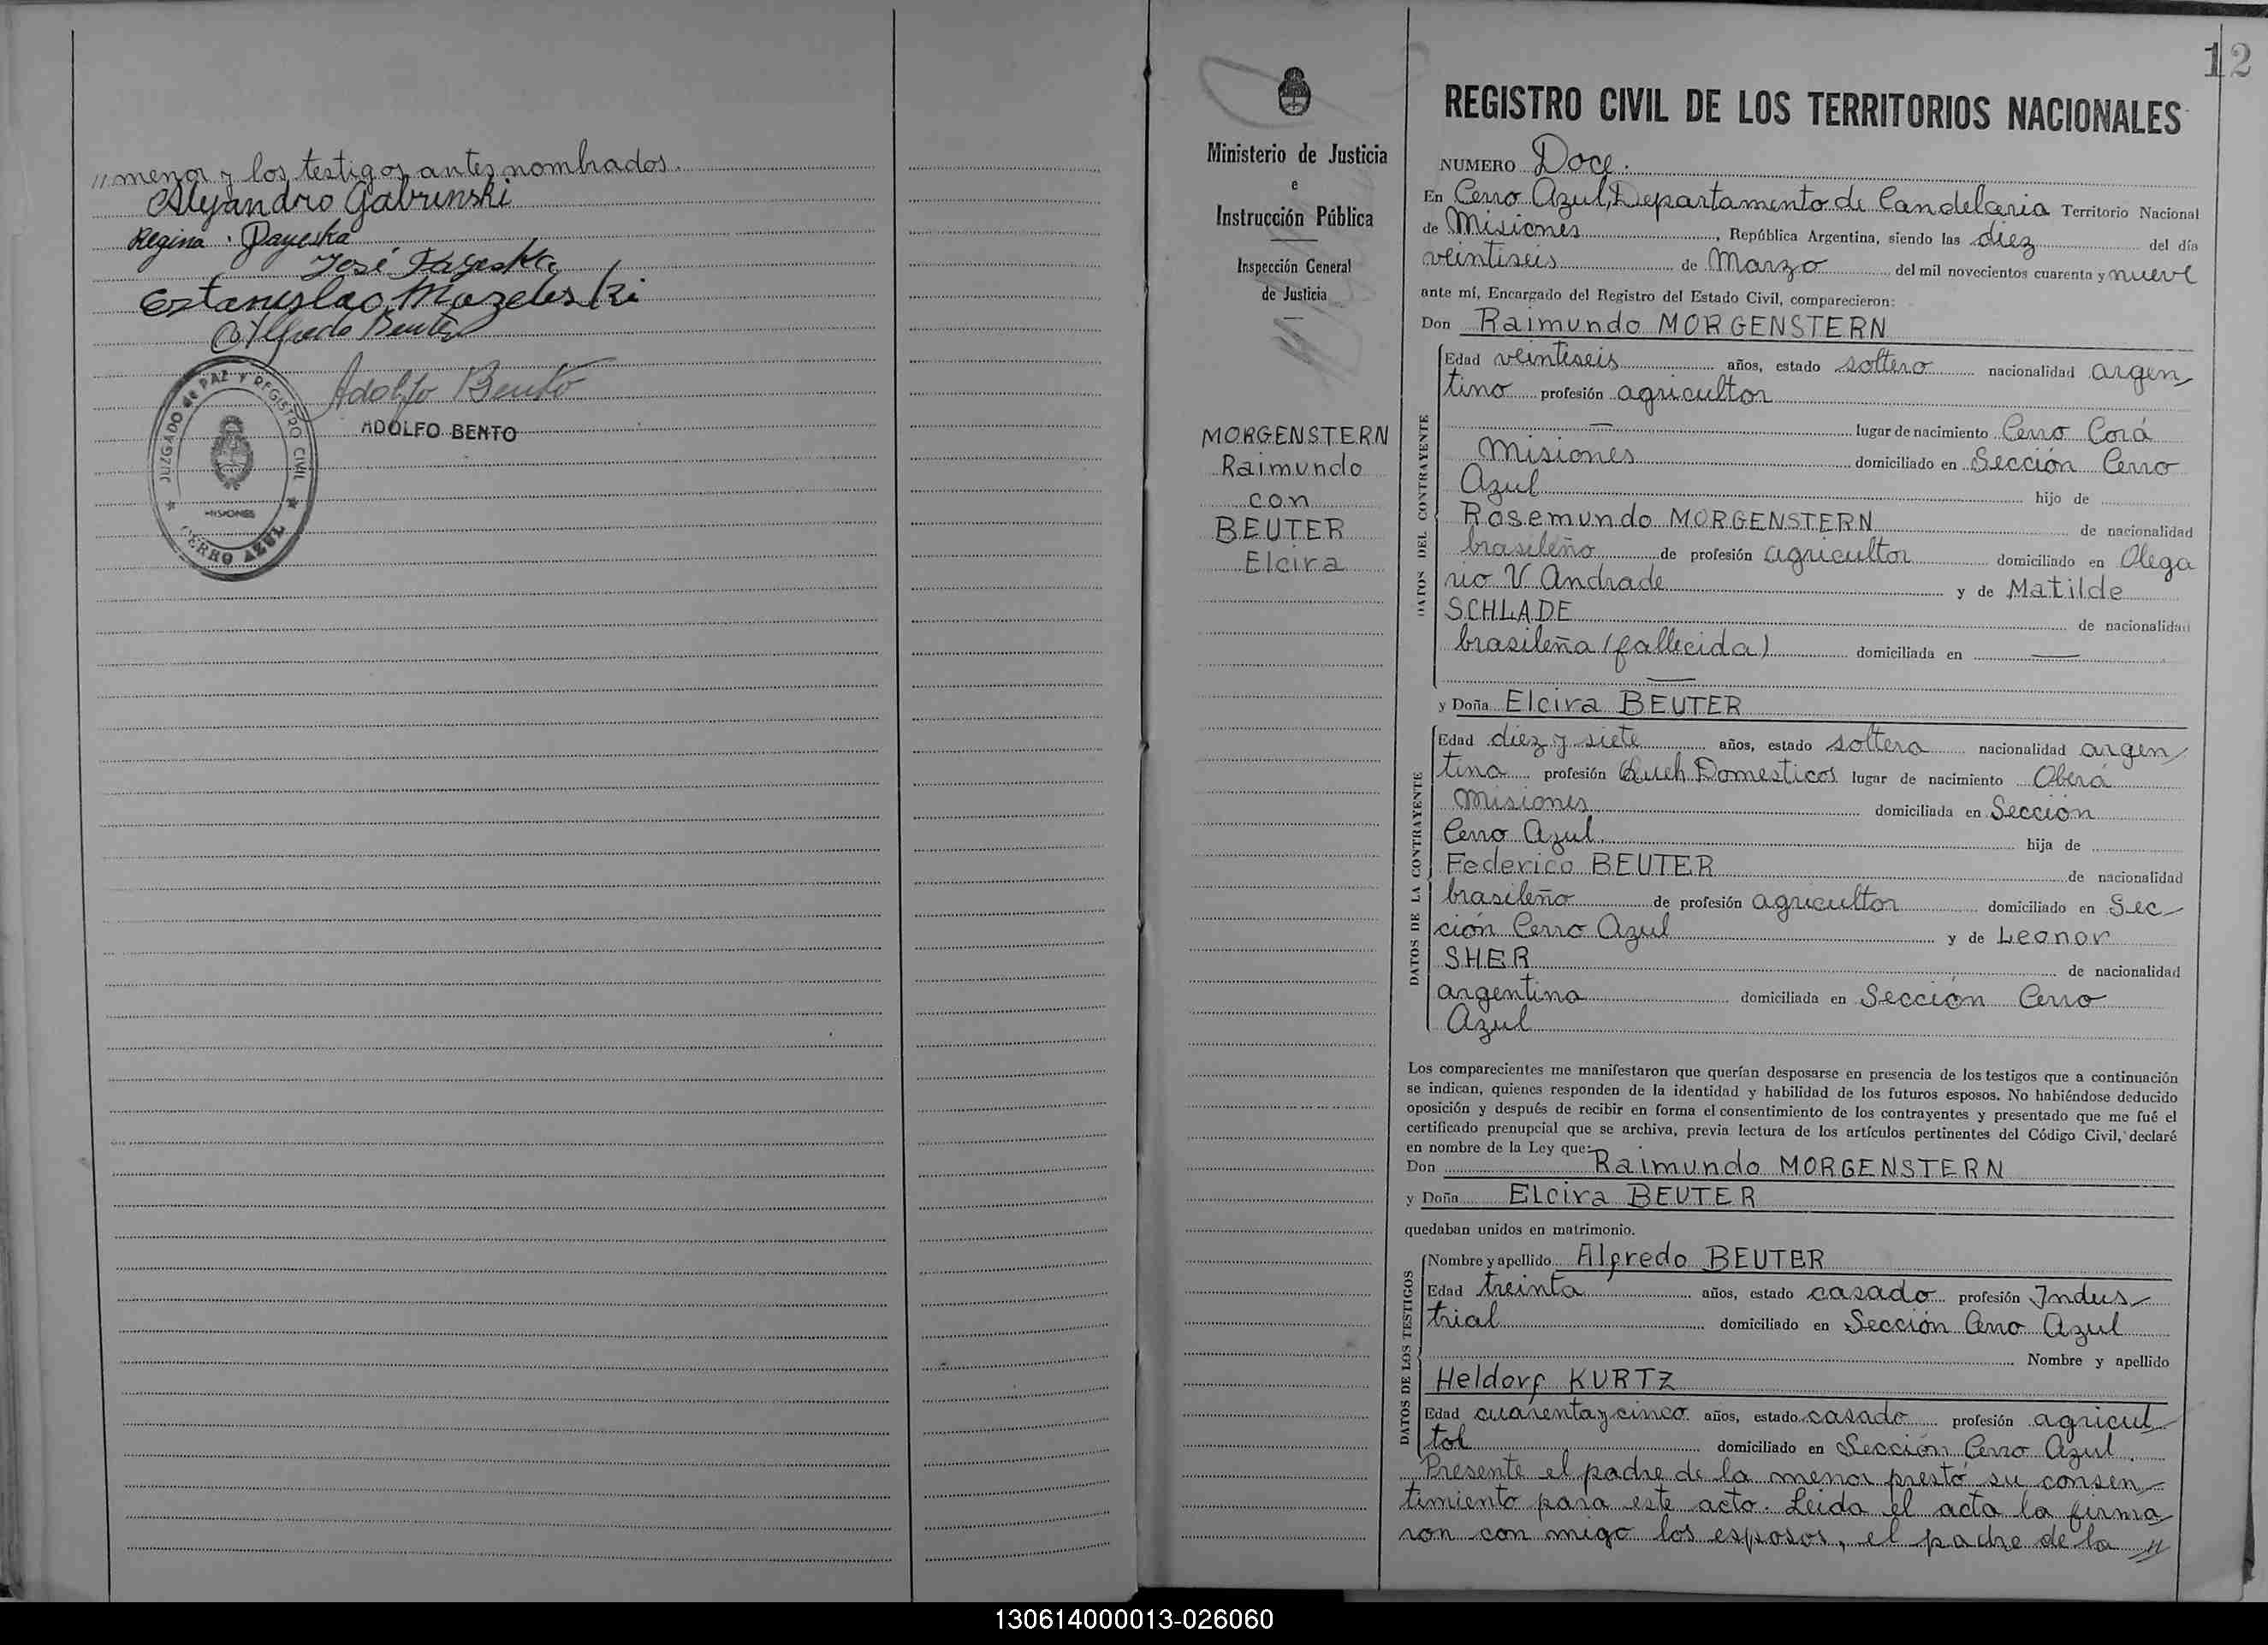 // menor y los testigos antes nombrados.
Alejandro Gabrunski
Regina Payeska
José Payeska
Estanislao Mazeleski
Alfredo Beuter
Adolfo Bento
ADOLFO BENTO
JUZGADO de PAZ Y REGISTRO CIVIL
MISIONES
CERRO AZUL
12
Ministerio de Justicia
e
Instrucción Pública
Inspección General
de Justicia
MORGENSTERN
Raimundo
con
BEUTER
Elcira
REGISTRO CIVIL DE LOS TERRITORIOS NACIONALES
NUMERO Doce.
En Cerro Azul, Departamento de Candelaria Territorio Nacional
de Misiones, República Argentina, siendo las diez del día
veintiseis de Marzo del mil novecientos cuarenta y nueve
ante mí, Encargado del Registro del Estado Civil, comparecieron:
Don Raimundo MORGENSTERN
DATOS DEL CONTRAYENTE
Edad veintiseis años, estado soltero nacionalidad argen
tino profesión agricultor
— lugar de nacimiento Cerro Corá
Misiones domiciliado en Sección Cerro
Azul hijo de
Rosemundo MORGENSTERN de nacionalidad
brasileño de profesión agricultor domiciliado en Olega
rio V. Andrade y de Matilde
SCHLADE de nacionalidad
brasileña (fallecida) domiciliada en —
—
y Doña Elcira BEUTER
DATOS DE LA CONTRAYENTE
Edad diez y siete años, estado soltera nacionalidad argen
tina profesión Queh. Domesticos lugar de nacimiento Oberá
Misiones domiciliada en Sección
Cerro Azul hija de
Federico BEUTER de nacionalidad
brasileño de profesión agricultor domiciliado en Sec
ción Cerro Azul y de Leonor
SHER de nacionalidad
argentina domiciliada en Sección Cerro
Azul
Los comparecientes me manifestaron que querían desposarse en presencia de los testigos que a continuación
se indican, quienes responden de la identidad y habilidad de los futuros esposos. No habiéndose deducido
oposición y después de recibir en forma el consentimiento de los contrayentes y presentado que me fué el
certificado prenupcial que se archiva, previa lectura de los artículos pertinentes del Código Civil, declaré
en nombre de la Ley que:
Don Raimundo MORGENSTERN
y Doña Elcira BEUTER
quedaban unidos en matrimonio.
DATOS DE LOS TESTIGOS
Nombre y apellido Alfredo BEUTER
Edad treinta años, estado casado profesión Indus
trial domiciliado en Sección Cerro Azul
Nombre y apellido
Heldorf KURTZ
Edad cuarenta y cinco años, estado casado profesión agricul
tor domiciliado en Sección Cerro Azul.
Presente el padre de la menor prestó su consen
timiento para este acto. Leida el acta la firma
ron con migo los esposos, el padre de la //
130614000013-026060